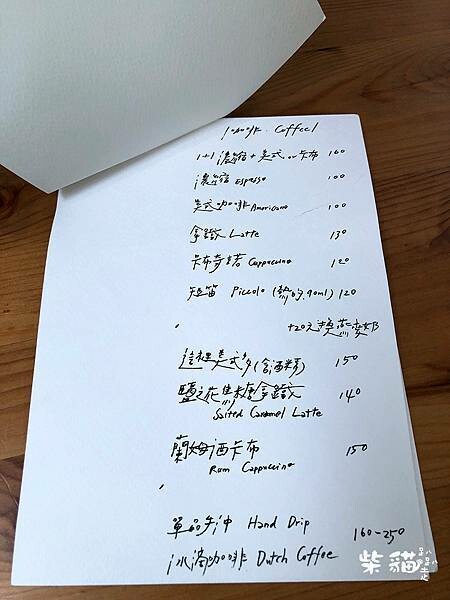 咖啡 Coffee
1+1 濃縮+美式 or 卡布 160
濃縮 Espresso 100
美式咖啡 Americano 100
拿鐵 Latte 130
卡布奇諾 Cappuccino 120
短笛 Piccolo (熱的,90ml) 120
+20元換燕麥奶
這裡美式多(含酒精) 150
鹽之花焦糖拿鐵 140
Salted Caramel Latte
蘭姆酒卡布 150
Rum Cappuccino
單品手沖 Hand Drip
冰滴咖啡 Dutch Coffee 160-250
柴貓